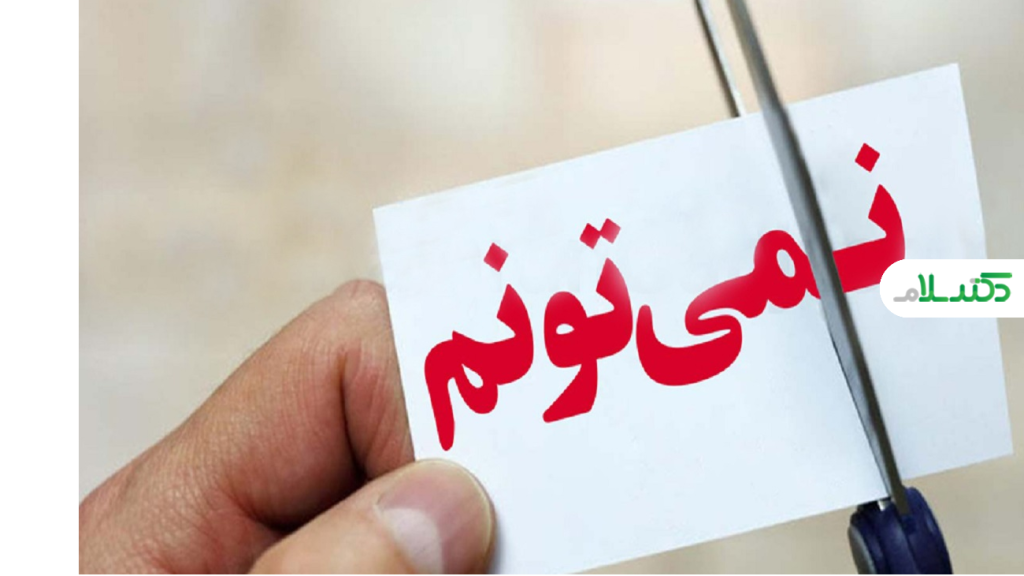 نمی‌تونم
دکتر سلام